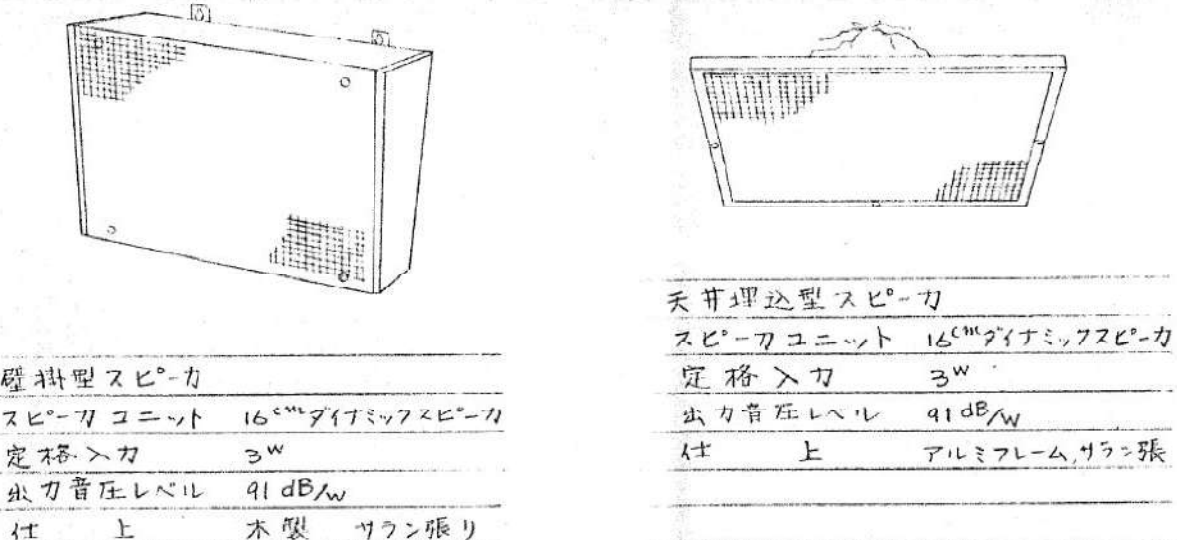 壁掛型スピーカ
スピーカユニット 16cmダイナミックスピーカ
定格入力 3W
出力音圧レベル 91dB/W
仕上 木製 サラン張り
天井埋込型スピーカ
スピーカユニット 16cmダイナミックスピーカ
定格入力 3W
出力音圧レベル 91dB/W
仕上 アルミフレーム,サラン張